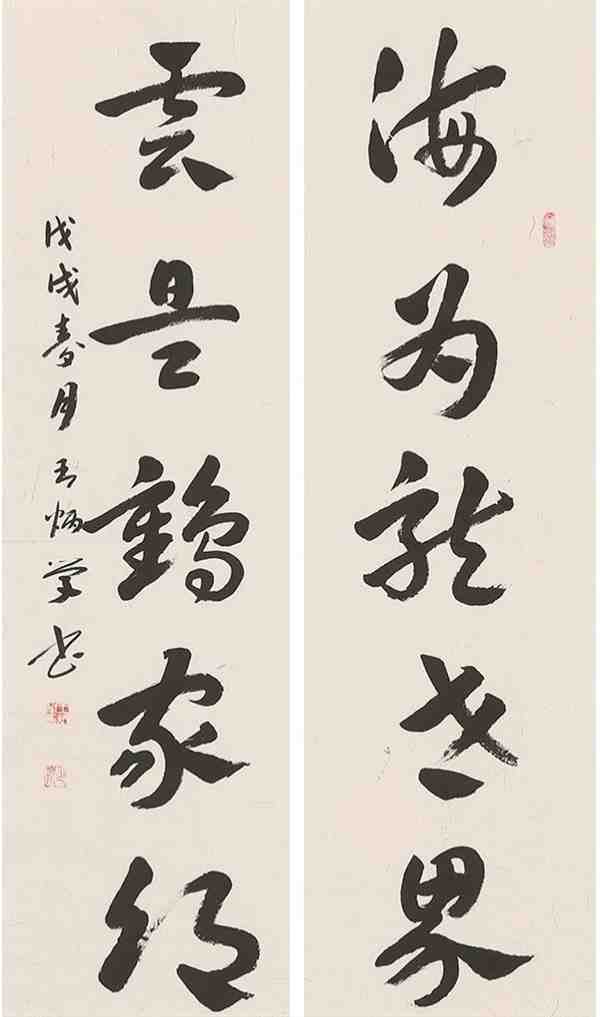 海为龙世界
雲是鶴家乡
戊戌春月王炳学书